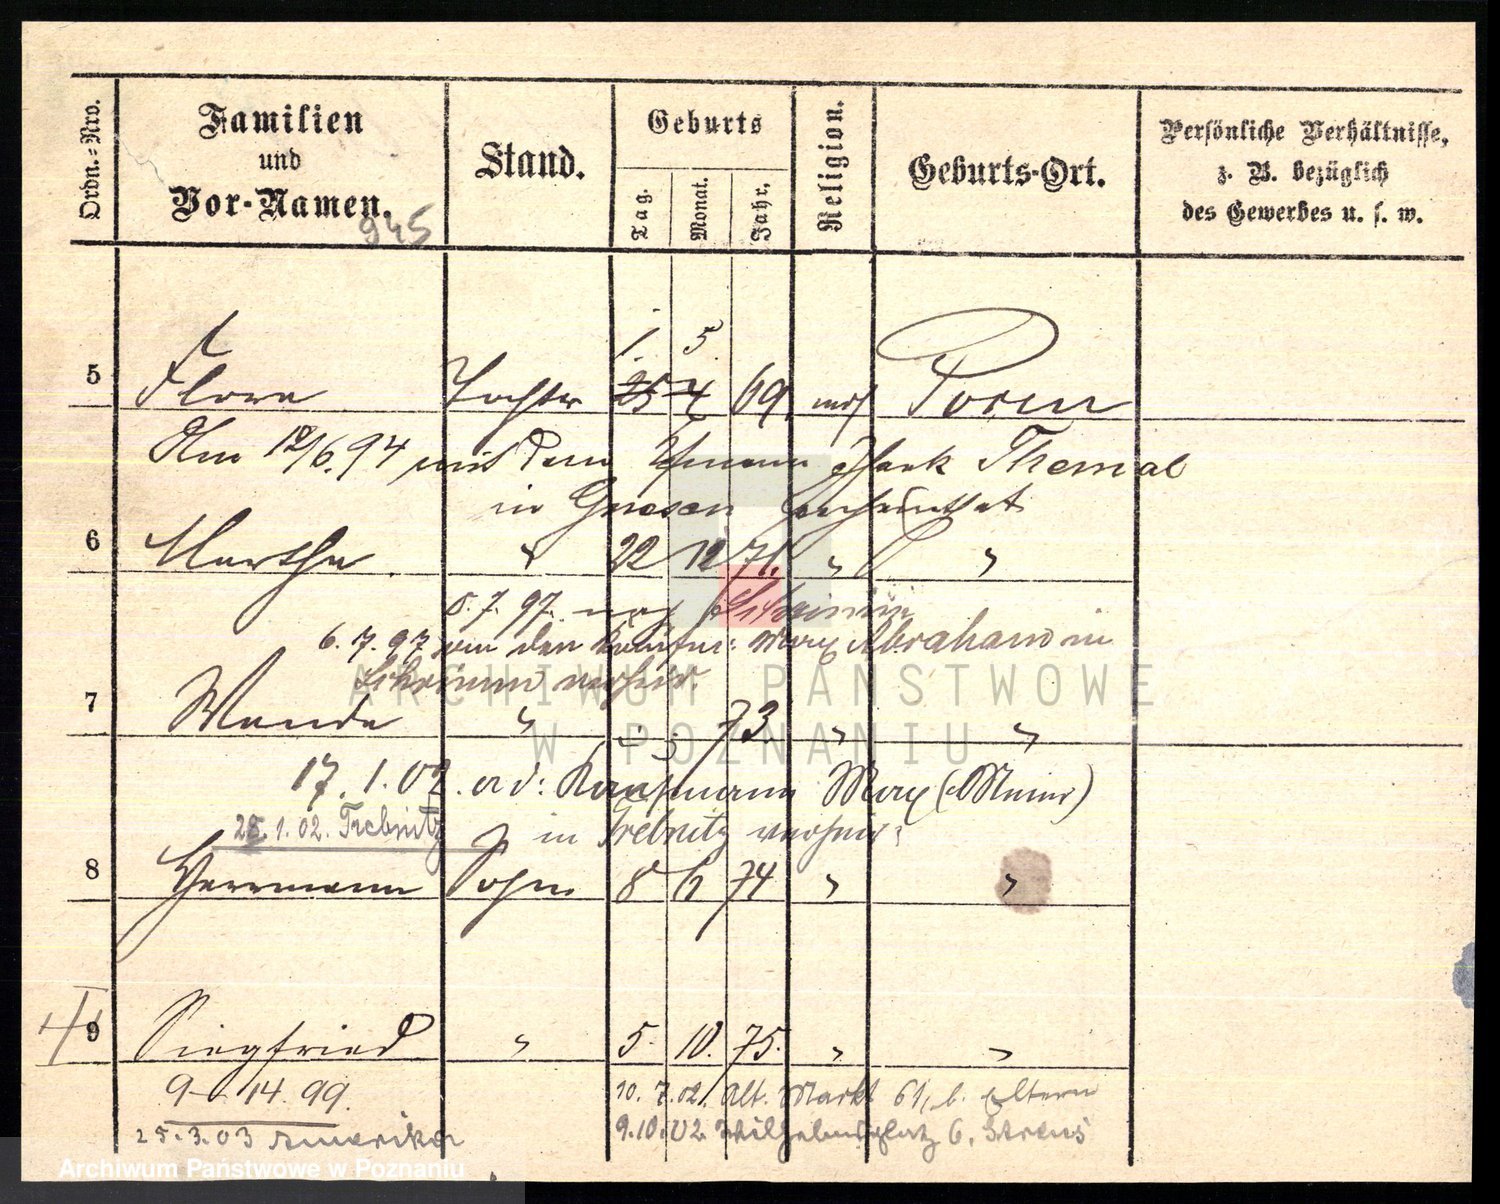 Ordn.-Nro.
Familien
und
Vor-Namen.
Stand.
Geburts
Tag.
Monat.
Jahr.
Religion.
Geburts-Ort.
Persönliche Verhältnisse,
z. B. bezüglich
des Gewerbes u. s. w.
945
1. 5.
5 Flora Tochter 25 4 69. mos Posen
Am 12/6.94 mit dem Isaak Themal
in Gnesen
6 Martha " 22 12 71. " "
8.7.97. nach Schrimm
6.7.97 an den Kaufm: Max Abraham in
Schrimm verheir.
7 Wanda " 73. " "
17.1.02. a d: Kaufmann Max (Meier)
25.1.02. Trebnitz in Trebnitz verheir:
8 Herrmann Sohn 8 6 74 " "
9 Siegfried " 5. 10. 75. " "
9-14.99. 10.7.02. Alt. Markt 61, b. Eltern
25.3.03 Amerika 9.10.02 Wilhelmsplatz 6.
ARCHIWUM PAŃSTWOWE
W POZNANIU
Archiwum Państwowe w Poznaniu